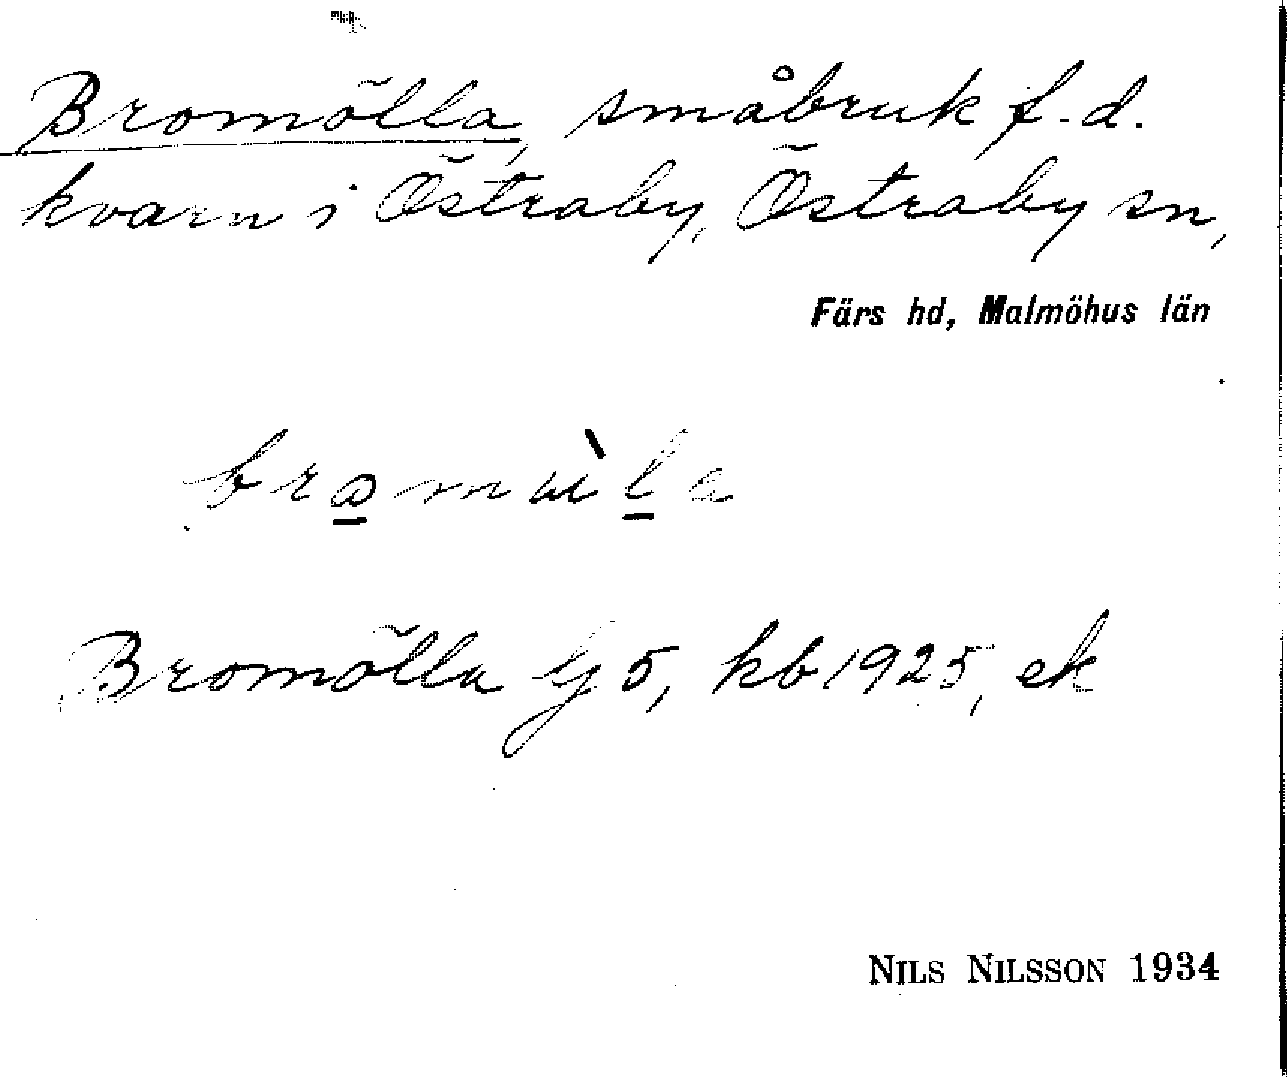 Bromölla, småbruk f.d.
kvarn i Östraby, Östraby sn,
Färs hd, Malmöhus län
Bromölla lj 5, kb 1925, ek
NILS NILSSON 1934